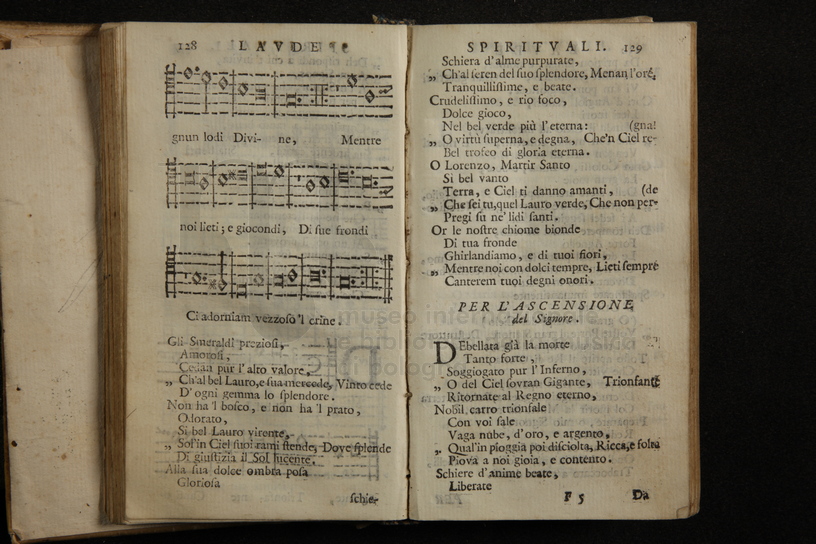 128 LAVDE
gnun lodi Divi- ne, Mentre
noi lieti; e giocondi, Di sue frondi
Ci adorniam vezzoso 'l crine.
Gli Smeraldi preziosi,
Amorosi,
Cedan pur l'alto valore,
„ Ch'al bel Lauro, e sua mercede, Vinto cede
D'ogni gemma lo splendore.
Non ha 'l bosco, e non ha 'l prato,
Odorato,
Si bel Lauro virente,
„ Sol'in Ciel suoi rami stende, Dove splende
Di giustizia il Sol lucente.
Alla sua dolce ombra posa
Gloriosa
schie-
SPIRITVALI. 129
Schiera d'alme purpurate,
„ Ch'al seren del suo splendore, Menan l'ore,
Tranquillissime, e beate.
Crudelissimo, e rio foco,
Dolce gioco,
Nel bel verde più l'eterna: (gna!
„ O virtù superna, e degna, Che'n Ciel re-
Bel trofeo di gloria eterna.
O Lorenzo, Martir Santo
Si bel vanto
Terra, e Ciel ti danno amanti, (de
„ Che sei tu, quel Lauro verde, Che non per-
Pregi su ne' lidi santi.
Or le nostre chiome bionde
Di tua fronde
Ghirlandiamo, e di tuoi fiori,
„ Mentre noi con dolci tempre, Lieti sempre
Canterem tuoi degni onori.
PER L'ASCENSIONE
del Signore.
DEbellata già la morte
Tanto forte,
Soggiogato pur l'Inferno,
„ O del Ciel sovran Gigante, Trionfante
Ritornate al Regno eterno,
Nobil carro trionfale
Con voi sale
Vaga nube, d'oro, e argento,
„ Qual'in pioggia poi disciolta, Ricca, e folta
Piova a noi gioia, e contento.
Schiere d'anime beate,
Liberate
F 5 Da